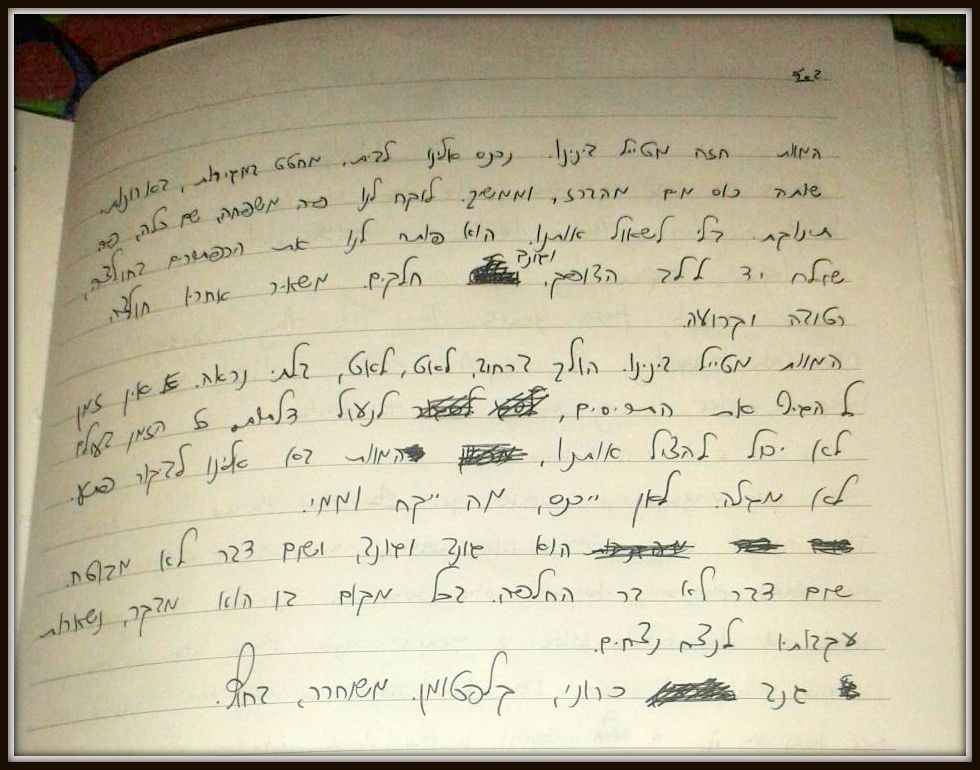 בס"ד
המוות הזה מטייל בינינו. נכנס אלינו לבית, מחטט במגירות, בארונות,
שותה כוס מים מהברז, וממשיך. לוקח לנו פה משפחה, שם כלה, פה
תינוקת. בלי לשאול אותנו. הוא פותח לנו את הכפתורים בחולצה,
שולח יד ללב הפועם, וגונב חלקים. משאיר אחריו חולצה
רטובה וקרועה.
המוות מטייל בינינו. הולך ברחוב, לאט, לאט, בלתי נראה. אין זמן
להגיף את התריסים, לנעול דלתות. כל הזמן בעולם
לא יכול להציל אותנו, המוות בא אלינו לביקור פתע.
לא מגלה. לאן ייכנס, מה ייקח וממי.
הוא גונב וגונב, ושום דבר לא מבוטח.
שום דבר לא בר החלפה. בכל מקום בו הוא מבקר, נשארות
עקבותיו לנצח נצחים.
גנב כרוני, קלפטומן. משוחרר, בחוץ.